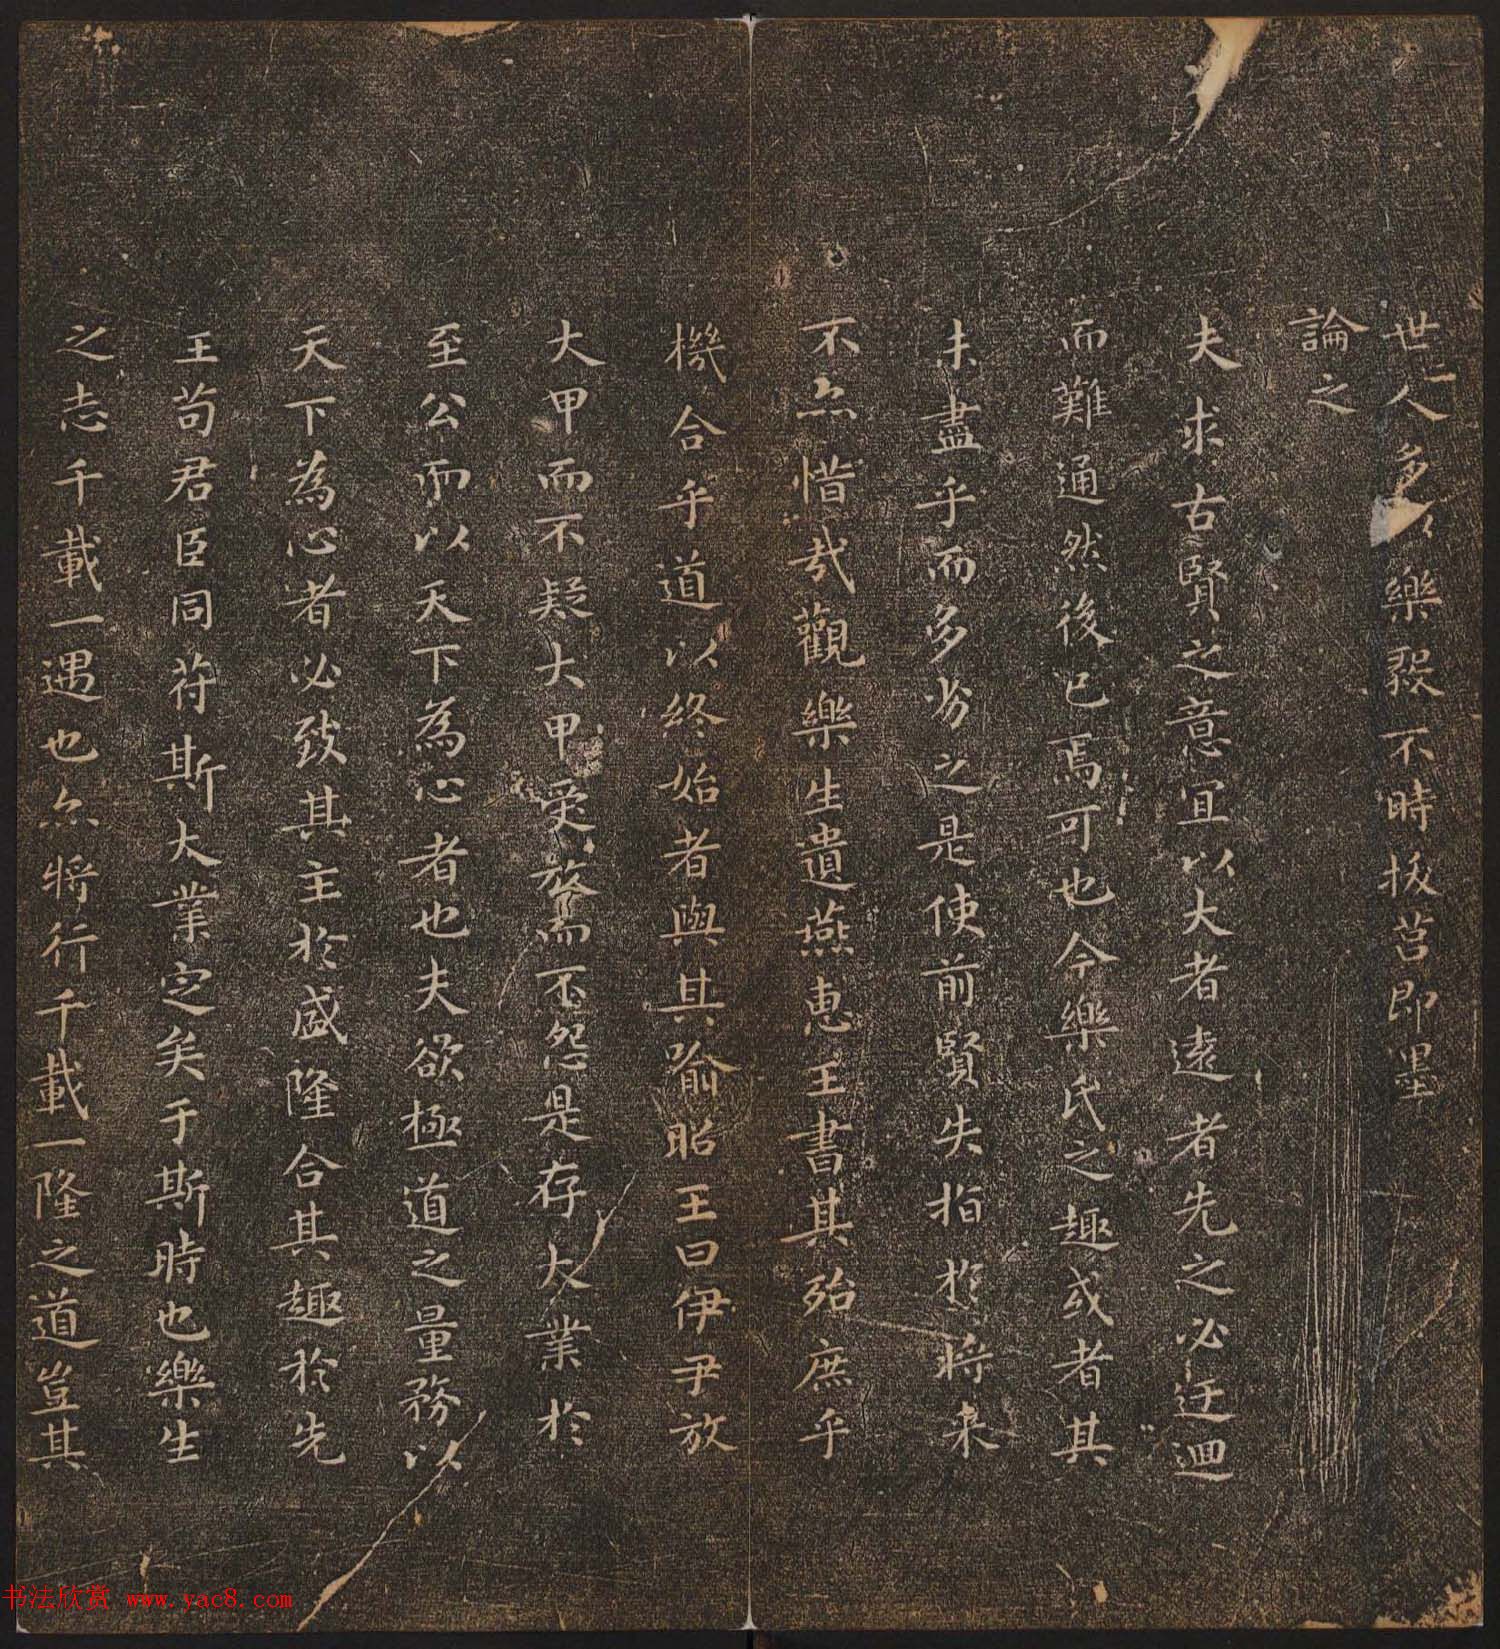 世人多以樂毅不時拔莒即墨
論之
夫求古賢之意宜以大者遠者先之必迂迴
而難通然後已焉可也今樂氏之趣或者其
未盡乎而多劣之是使前賢失指於將来
不亦惜哉觀樂生遺燕惠王書其殆庶乎
機合乎道以終始者與其喻昭王曰伊尹放
大甲而不疑大甲受放而不怨是存大業於
至公而以天下為心者也夫欲極道之量務以
天下為心者必致其主於盛隆合其趣於先
王苟君臣同符斯大業定矣于斯時也樂生
之志千載一遇也亦將行千載一隆之道豈其
书法欣赏 www.yac8.com